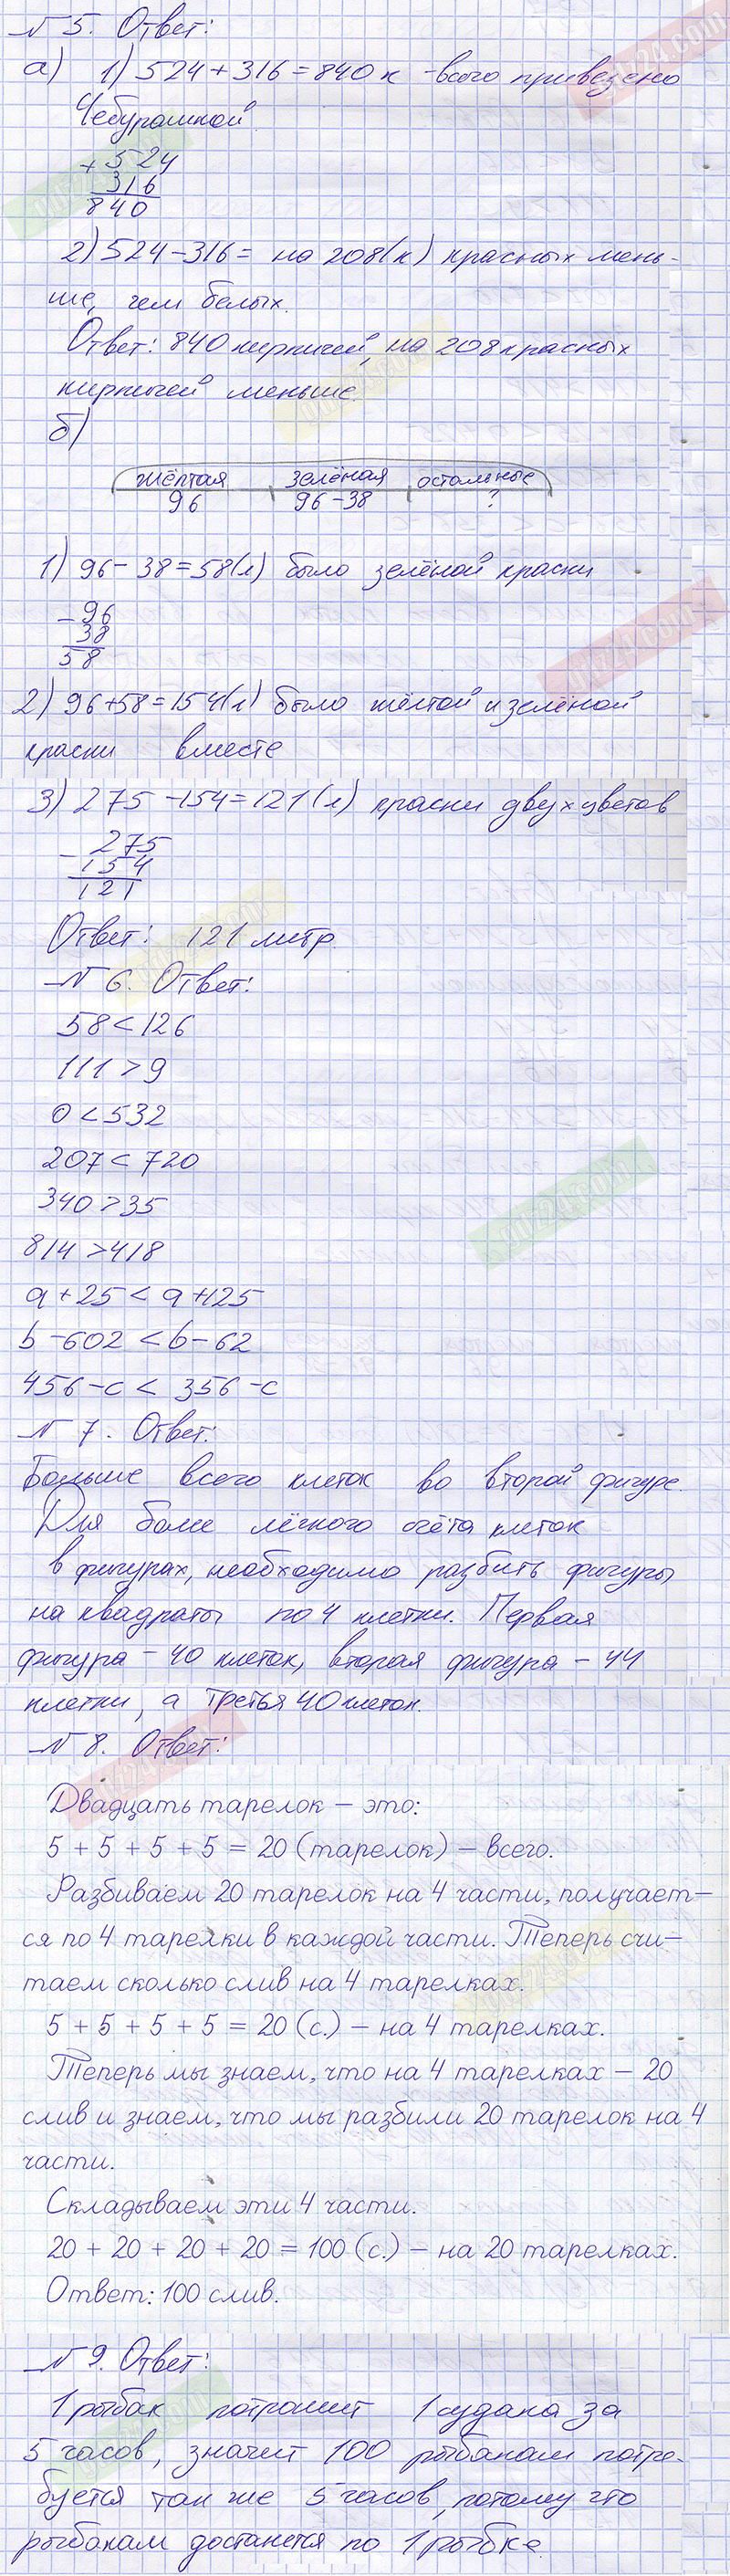 № 5. Ответ:
а) 1) 524 + 316 = 840 к - всего привезено
Чебурашкой
+ 524
316
840
2) 524 - 316 = на 208 (к) красных мень-
ше, чем белых.
Ответ: 840 кирпичей, на 208 красных
кирпичей меньше.
б)
жёлтая зелёная остальные
96 96 - 38 ?
1) 96 - 38 = 58 (л) было зелёной краски
- 96
38
58
2) 96 + 58 = 154 (л) было жёлтой и зелёной
краски вместе
3) 275 - 154 = 121 (л) краски двух цветов
- 275
154
121
Ответ: 121 литр.
№ 6. Ответ:
58 < 126
111 > 9
0 < 532
207 < 720
340 > 35
814 > 418
a + 25 < a + 125
b - 602 < b - 62
456 - c < 356 - c
№ 7. Ответ:
Больше всего клеток во второй фигуре.
Для более лёгкого счёта клеток
в фигурах, необходимо разбить фигуры
на квадраты по 4 клетки. Первая
фигура - 40 клеток, вторая фигура - 44
клетки, а третья 40 клеток.
№ 8. Ответ:
Двадцать тарелок – это:
5 + 5 + 5 + 5 = 20 (тарелок) – всего.
Разбиваем 20 тарелок на 4 части, получает-
ся по 4 тарелки в каждой части. Теперь счи-
таем сколько слив на 4 тарелках.
5 + 5 + 5 + 5 = 20 (с.) – на 4 тарелках.
Теперь мы знаем, что на 4 тарелках – 20
слив и знаем, что мы разбили 20 тарелок на 4
части.
Складываем эти 4 части.
20 + 20 + 20 + 20 = 100 (с.) – на 20 тарелках.
Ответ: 100 слив.
№ 9. Ответ:
1 рыбак потрошит 1 судака за
5 часов, значит 100 рыбакам потре-
буется так же 5 часов, потому что
рыбакам достанется по 1 рыбке.